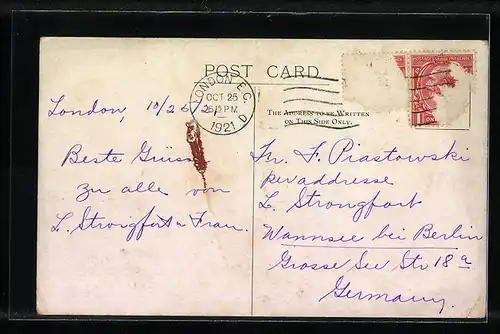 POST CARD
LONDON E.C.
OCT 25
1921
D
THE ADDRESS TO BE WRITTEN
ON THIS SIDE ONLY.
London, 10/25/21
Beste Grüsse
zu alle von
L. Strongfort u Frau.
Hr. F. Piastowski
per addresse
L. Strongfort
Wannsee bei Berlin
Grosse See Str 18a
Germany.